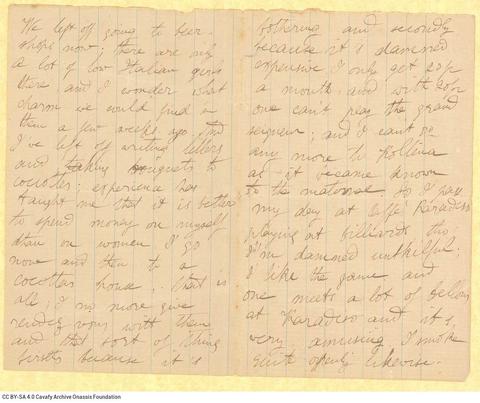 We left off going to beer-
shops now; there are only
a lot of low Italian girls
there and I wonder what
charm we could find in
them a few weeks ago. And
I've left off writing letters
and taking bouquets to
cocottes; experience has
taught me that it is better
to spend money on myself
than on women. I go
now and then to a
cocottes house, that is
all; I no more give
rendez vous with them
and that sort of thing
firstly because it is
bothering and secondly
because it is damned
expensive. I only get
a month and with
one can't play the grand
seigneur; and I can't go
any more to
as it became known
to the . So I pass
my day at Café Paradiso
playing at billiards tho'
I'm damned unskilful.
I like the game and
one meets a lot of fellows
at Paradiso and it's
very amusing. I smoke
quite openly likewise.
CC BY-SA 4.0 Cavafy Archive Onassis Foundation